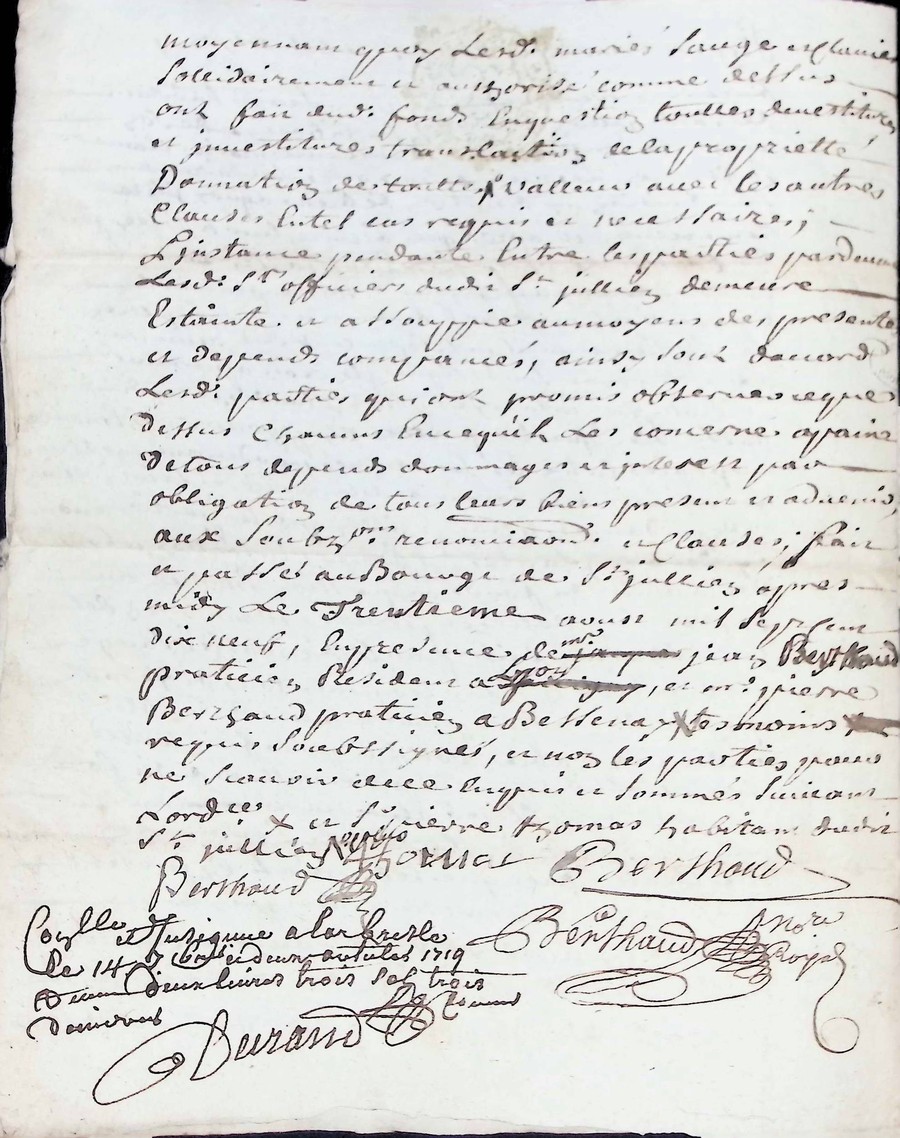 moyennant quoy lesd. mariés Sauge et Clavier
sollidairement et authorisé comme dessus
ont fait dud. fonds en question touttes devestitures
et jnvestitures translaction de la proprietté
Donnation de toutte valleur avec les autres
Clauses en tel cas requis et necessaires;
L'jnstance pendante entre les parties pardevant
Lesd. Srs officiers dudit St jullien demeure
Estainte et assouppie au moyens des presente
et depends compancés, ainsy sont d'accord
Lesd. parties qui ont promis observer ce que
Dessus Chacuns en ce qu'il Les concerne a paine
De tous depends dommages et jnterest par
obligation de tous leurs biens present et advenir,
aux soubzons renonciaons et Clauses; fait
et passé au Bourge de St jullien apres
midy Le Trentieme aoust mil sept cent
dix neuf, en presence de mr jean Berthaud
praticien Resident a Lyon, et mr pierre
Berthaud praticien a Bessenay X tesmoins X
requis soubssignés, et non les parties pour
ne scavoir de ce enquis et sommés suivant
L'ordce X et Sr pierre thomas habitant dudit
St jullien thomas Berthaud
Berthaud
Berthaud Nore
Royal
Con̄lle et Jnsignue a Larbresle
Le 14 7bre 1719
deux livres trois sols trois
deniers
Durand